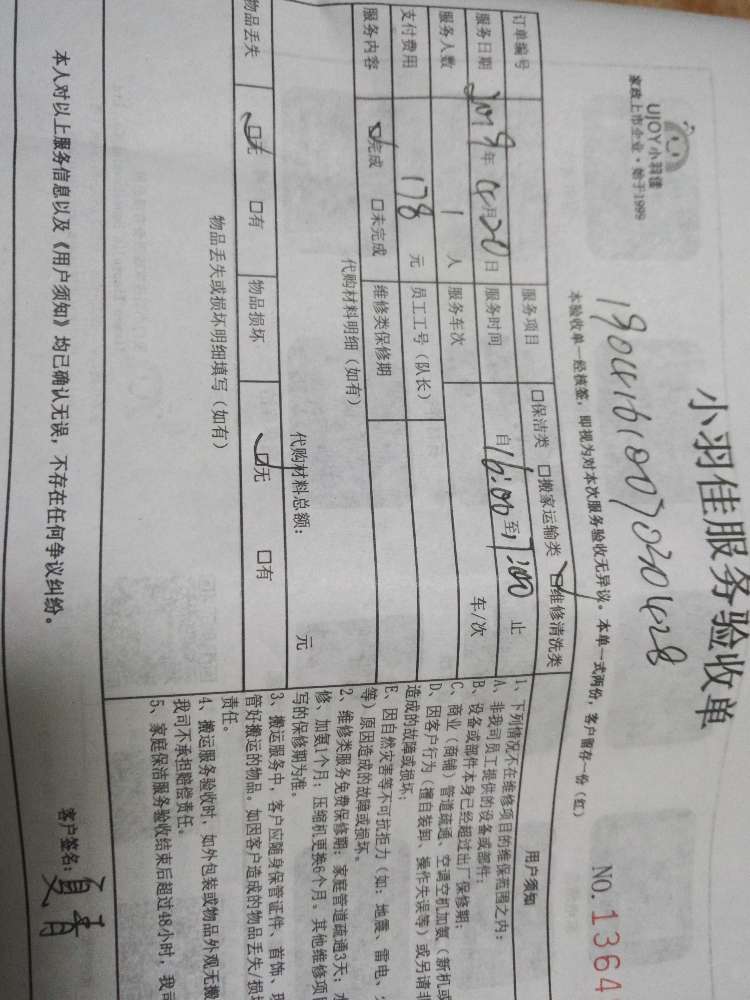 UJOY小羽佳
家政上市企业·始于1999
小羽佳服务验收单
NO.1364
19041610070304028
本验收单一经核签，即视为对本次服务验收无异议。本单一式两份，客户留存一份（红）
订单编号 服务项目 □保洁类 □搬家运输类 ☑维修清洗类
服务日期 2019年04月20日 服务时间 自16:00至17:00止
服务人数 1人 服务车次 车/次
支付费用 178元 员工工号（队长）
服务内容 ☑完成 □未完成 维修类保修期
代购材料明细（如有）
代购材料总额： 元
物品丢失 ☑无 □有 物品损坏 ☑无 □有
物品丢失或损坏明细填写（如有）
用户须知
1、下列情况不在维修项目的维保范围之内：
A、非我司员工提供的设备或部件；
B、设备或部件本身已经超过出厂保修期；
C、商业（商铺）管道疏通、空调空机加氨（新机或
D、因客户行为（擅自装卸、操作失误等）或另请非
造成的故障或损坏；
E、因自然灾害等不可抗拒力（如：地震、雷电、
等）原因造成的故障或损坏。
2、维修类服务免费保修期：家庭管道疏通3天；
修、加氨1个月；压缩机更换6个月。其他维修项目
写的保修期为准。
3、搬运服务中，客户应随身保管证件、首饰、现
管好搬运的物品。如因客户造成的物品丢失/损坏
责任。
4、搬运服务验收时，如外包装或物品外观无搬
我司不承担赔偿责任。
5、家庭保洁服务验收结束后超过48小时，我司
本人对以上服务信息以及《用户须知》均已确认无误，不存在任何争议纠纷。
客户签名：